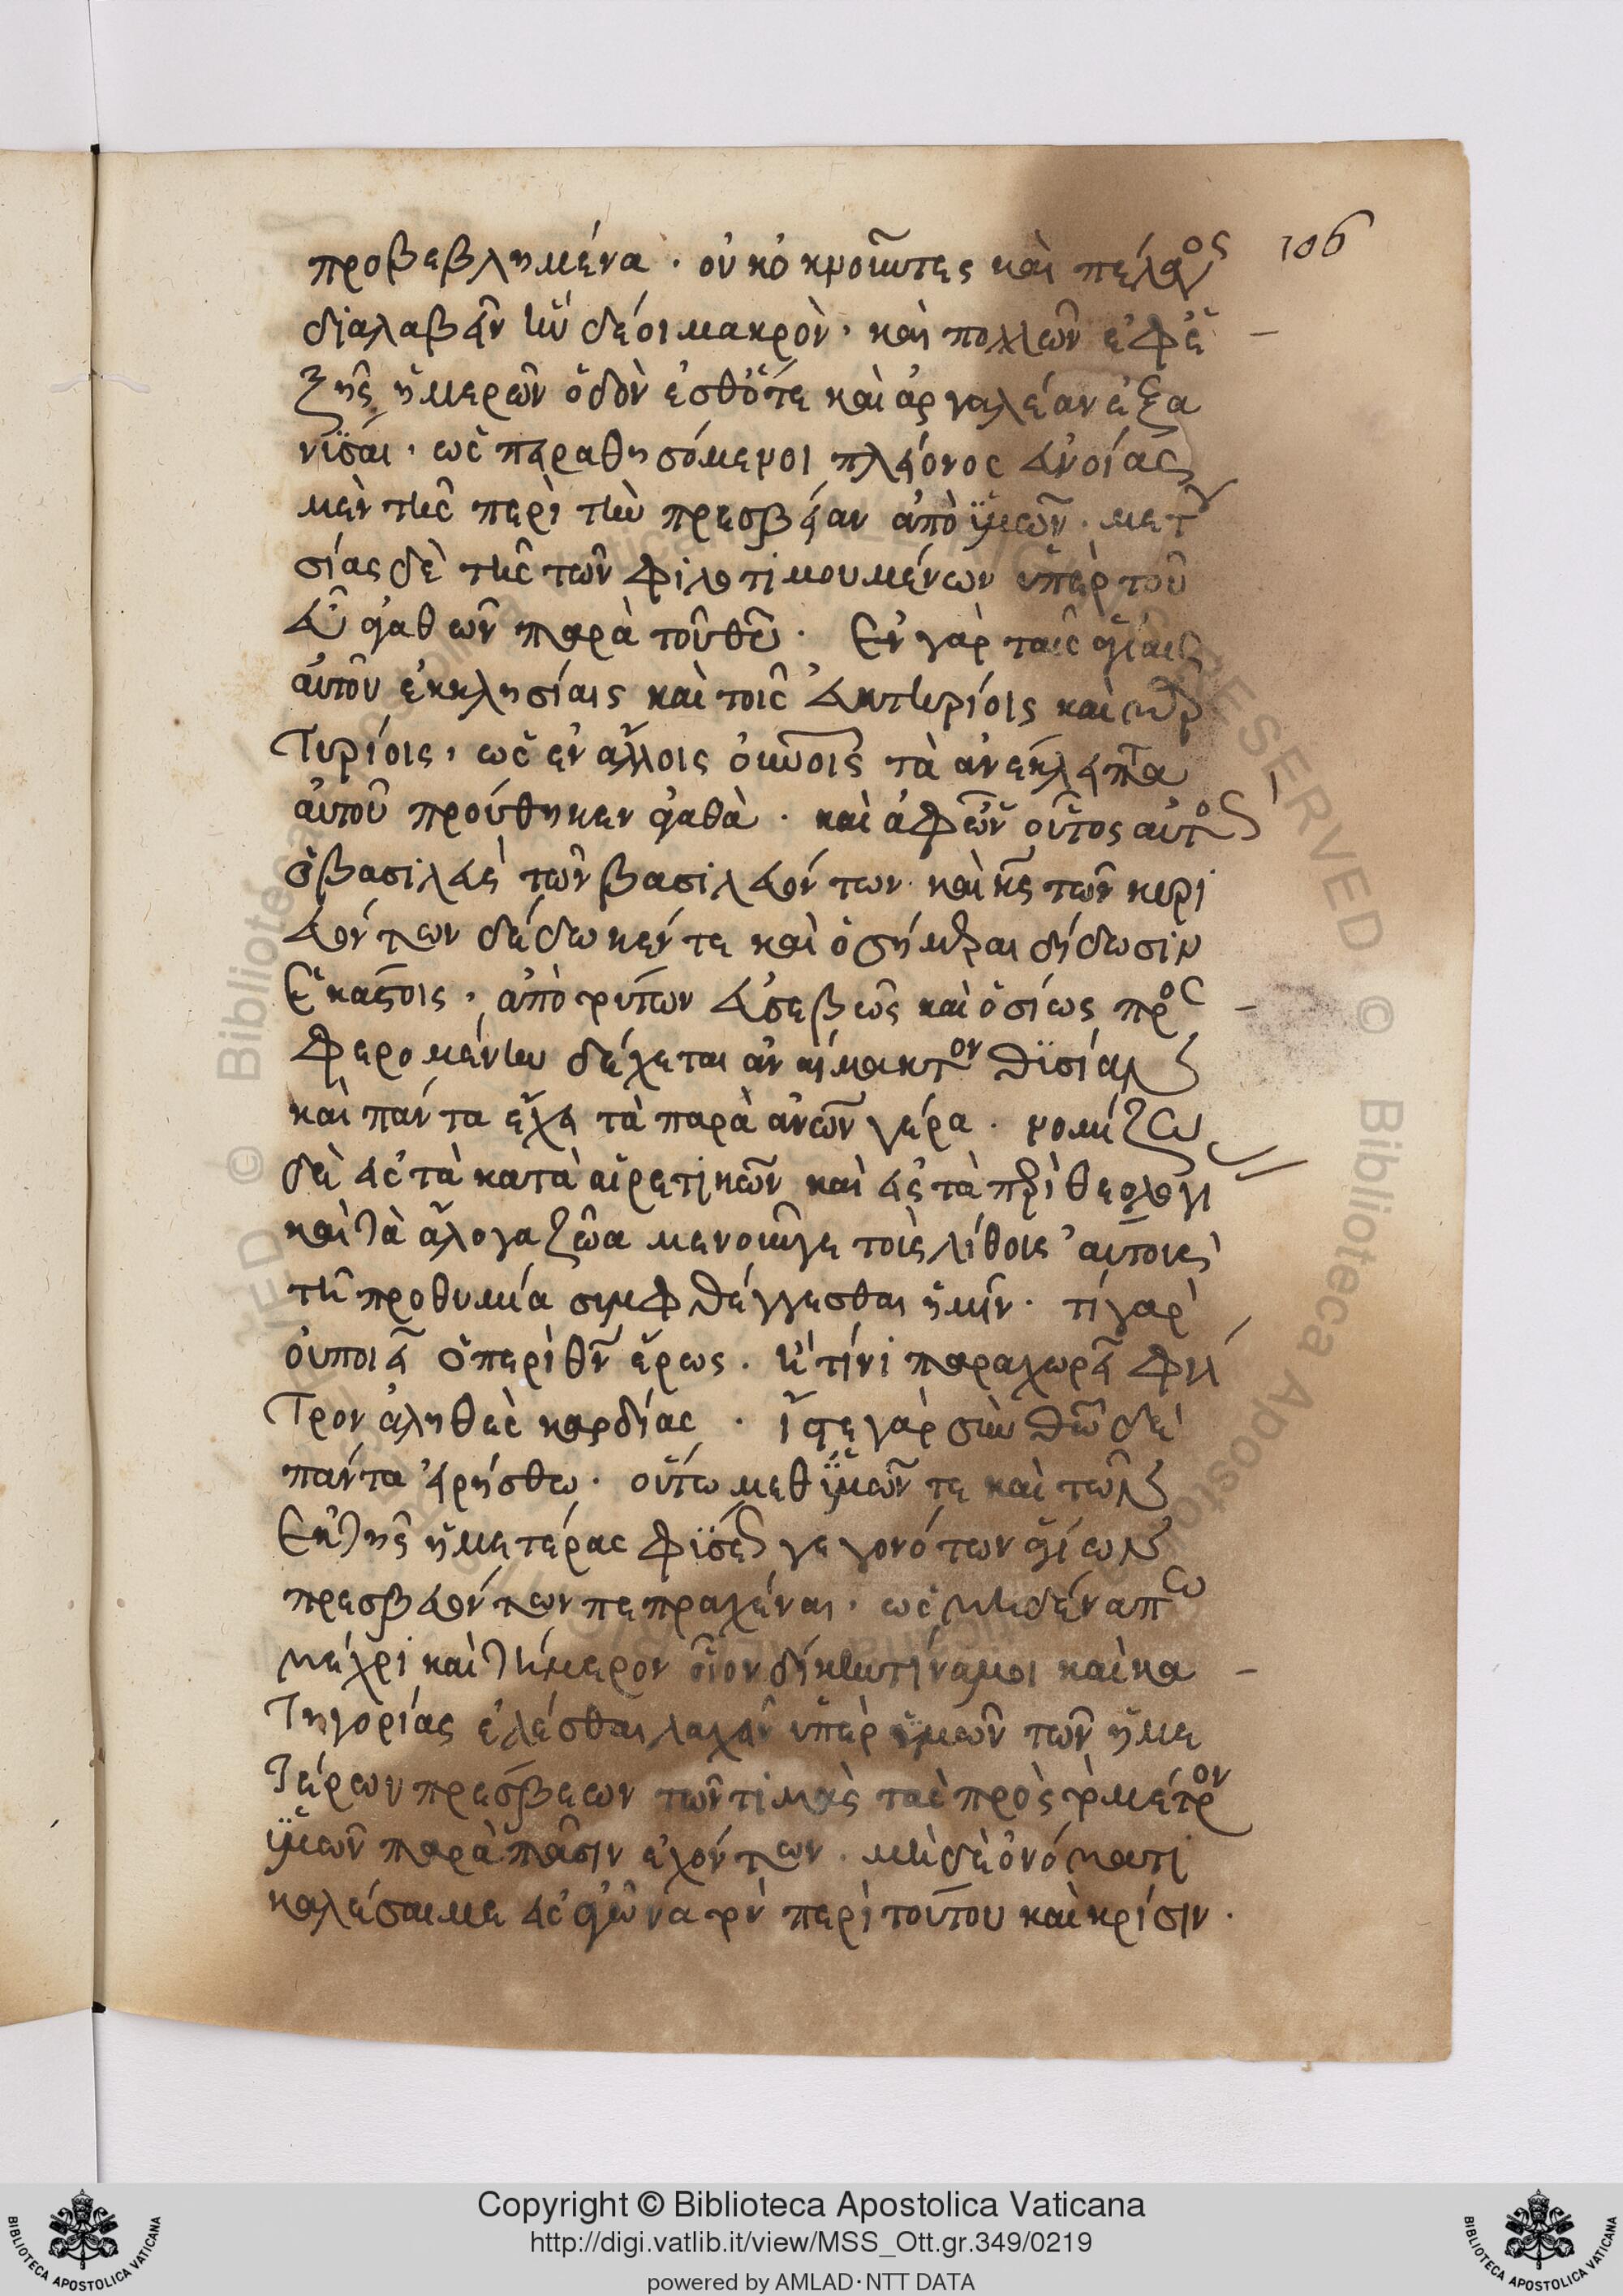 106
προβεβλημένα · οὐκ ὀκνοῦντες καὶ πέλαγος
διαλαβεῖν ἢν δέοι μακρὸν · καὶ πολλῶν ἐφε
ξῆς ἡμερῶν ὁδὸν ἐσθότε καὶ ἀργαλέαν ἐξα
νῦσαι · ὡς πειραθησόμενοι πλείονος εὐνοίας
μὲν τῆς περὶ τὴν πρεσβείαν ἀπὸ ὑμῶν · μετ
σίας δὲ τῆς τῶν φιλοτιμουμένων ὑπὲρ τοῦ
ἀγαθῶν παρὰ τοῦ θυ · Ἐν γὰρ ταῖς ἁγίαις
αὐτοῦ ἐκκλησίαις καὶ τοῖς εὐκτηρίοις καὶ μαρ
τυρίοις · ὡς ἐν ἄλλοις οὐνοις τὰ ἀνέκλειπτα
αὐτοῦ προύθηκεν ἀγαθὰ · καὶ ἀφ ὧν οὗτος αὐτὸς
ὁ βασιλεὺς τῶν βασιλευόντων · καὶ κς τῶν κυρι
ευόντων δέδωκέν τε καὶ ὁσημέραι δίδωσιν
ἑκάστοις · ἀπὸ τούτων εὐσεβῶς καὶ ὁσίως προς
φερομένην δέχεται ἀναίμακτον θυσίαν
καὶ πάντα ἔχει τὰ παρὰ ἀνων γέρα · νομίζω
δὲ εἰς τὰ κατὰ αἱρετικῶν καὶ εἰς τὰ περὶ θεολογι
καὶ τὰ ἄλογα ζῶα μενοῦνγε τοῖς λίθοις αὐτοῖς
τῆ προθυμία συμφθέγγεσθαι ἡμῖν · τί γὰρ
οὐ ποιεῖ ὁ περὶ θν ἔρως · ἢ τίνι παραχωρεῖ φίλ
τρον ἀληθὲς καρδίας · ἴστε γὰρ σὺν θω δὲ
πάντα εἰρήσθω · οὕτω μεθ ὑμῶν τε καὶ τῶν
ἐκ τῆς ἡμετέρας φύσεως γεγονότων ἁγίων
πρεσβευόντων πεπραχέναι · ὡς μηδένα πω
μέχρι καὶ τήμερον οἷον δίκην τινά μοι καὶ κα
τηγορίας ἑλέσθαι λαχεῖν ὑπὲρ ὑμῶν τῶν ἡμε
τέρων πρέσβεων τῶν τιμὰς τὰς πρὸς τὸ μέτρον
ὑμῶν παρὰ πᾶσιν ἐχόντων · μὴ δὲ ὀνόματι
καλέσαι με εἰς ἀγῶνα τὸν περὶ τούτου καὶ κρίσιν ·
Copyright © Biblioteca Apostolica Vaticana
http://digi.vatlib.it/view/MSS_Ott.gr.349/0219
powered by AMLAD·NTT DATA
BIBLIOTECA APOSTOLICA VATICANA
BIBLIOTECA APOSTOLICA VATICANA